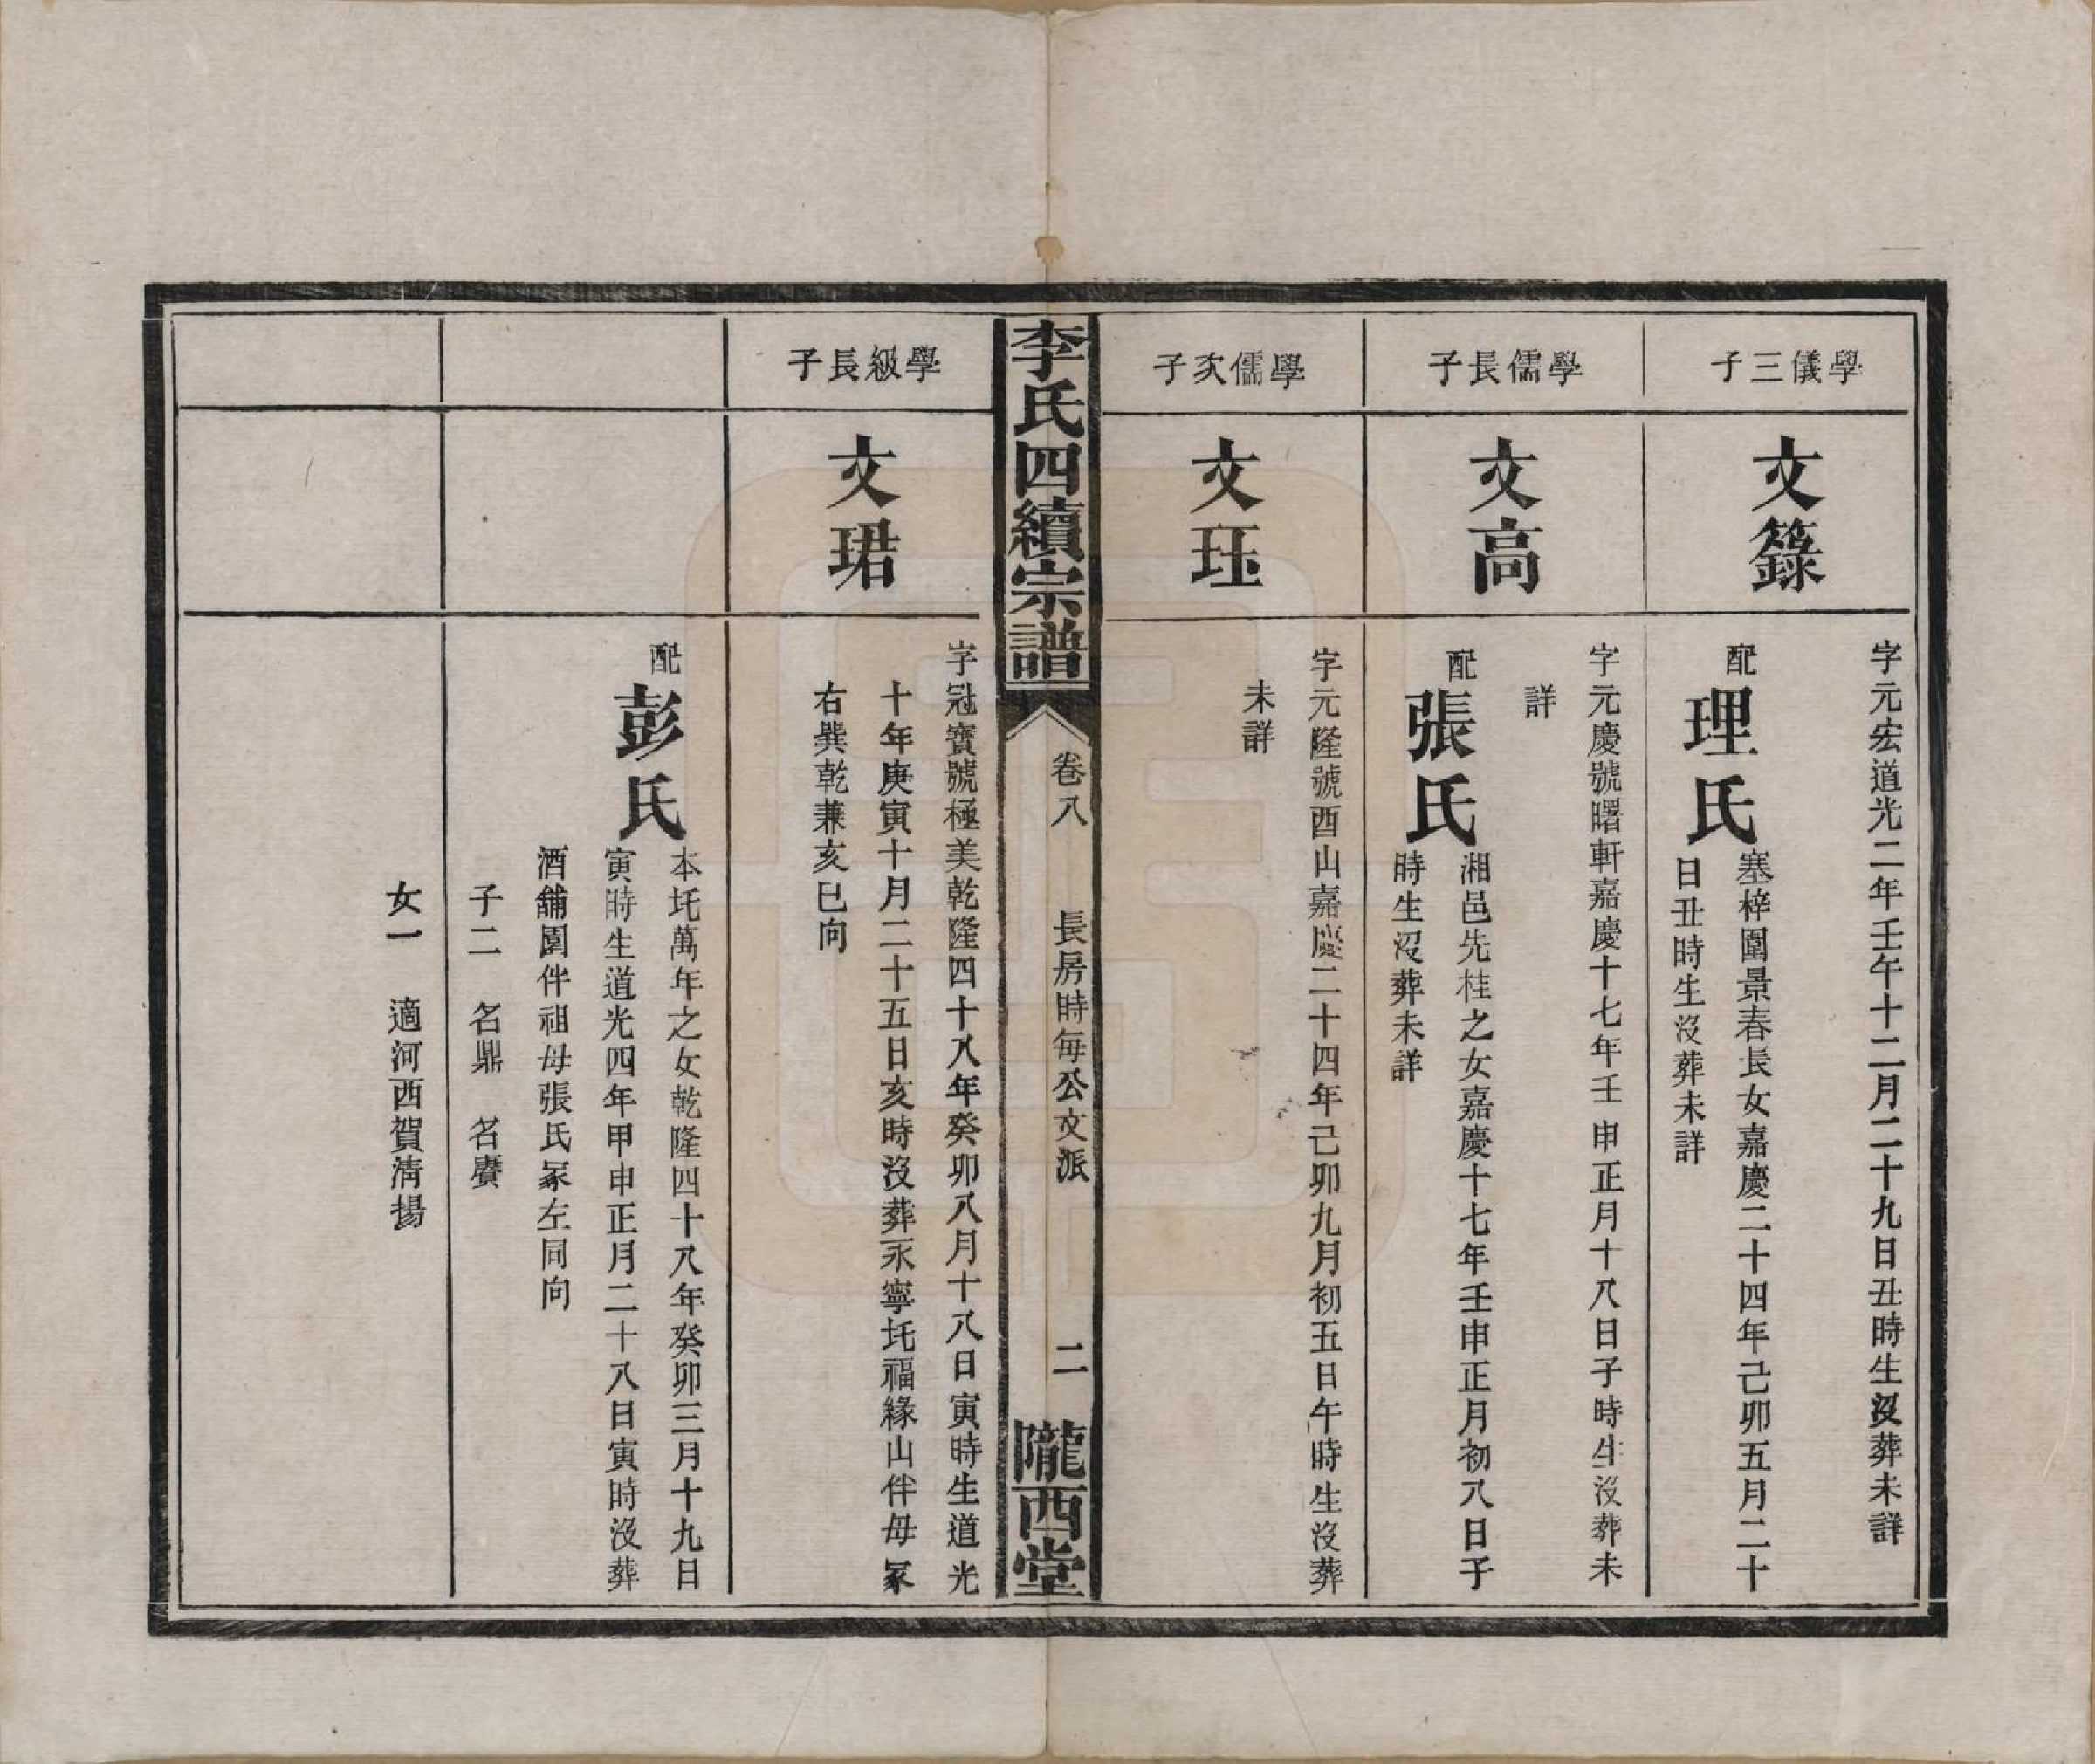 學儀三子
文籙
字元宏道光二年壬午十二月二十九日丑時生沒葬未詳
配
理氏
塞梓圍景春長女嘉慶二十四年己卯五月二十
日丑時生沒葬未詳
學儒長子
文高
字元慶號曙軒嘉慶十七年壬申正月十八日子時生沒葬未
詳
配
張氏
湘邑先桂之女嘉慶十七年壬申正月初八日子
時生沒葬未詳
學儒次子
文珏
字元隆號酉山嘉慶二十四年己卯九月初五日午時生沒葬
未詳
李氏四續宗譜
卷八
長房時每公文派
二
隴西堂
學級長子
文珺
字冠賓號極美乾隆四十八年癸卯八月十八日寅時生道光
十年庚寅十月二十五日亥時沒葬永寧圫福緣山伴母冢
右巽乾兼亥巳向
配
彭氏
本圫萬年之女乾隆四十八年癸卯三月十九日
寅時生道光四年甲申正月二十八日寅時沒葬
酒舖園伴祖母張氏冢左同向
子二 名鼎 名賡
女一 適河西賀清揚